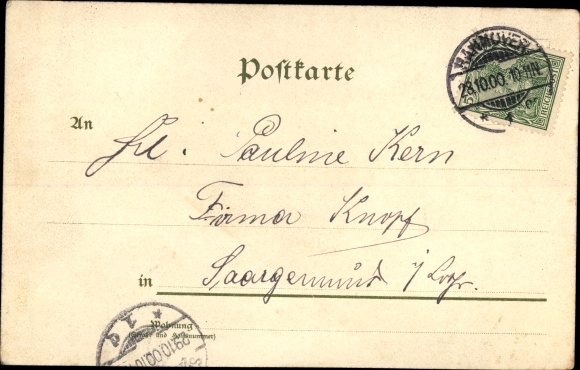 Postkarte
HANNOVER
28.10.00. 10-11N.
* 1
An
Frl. Pauline Kern
Firma Knopf
in Saargemünd i/Lothr.
Wohnung
(Straße und Hausnummer)
29.10.00